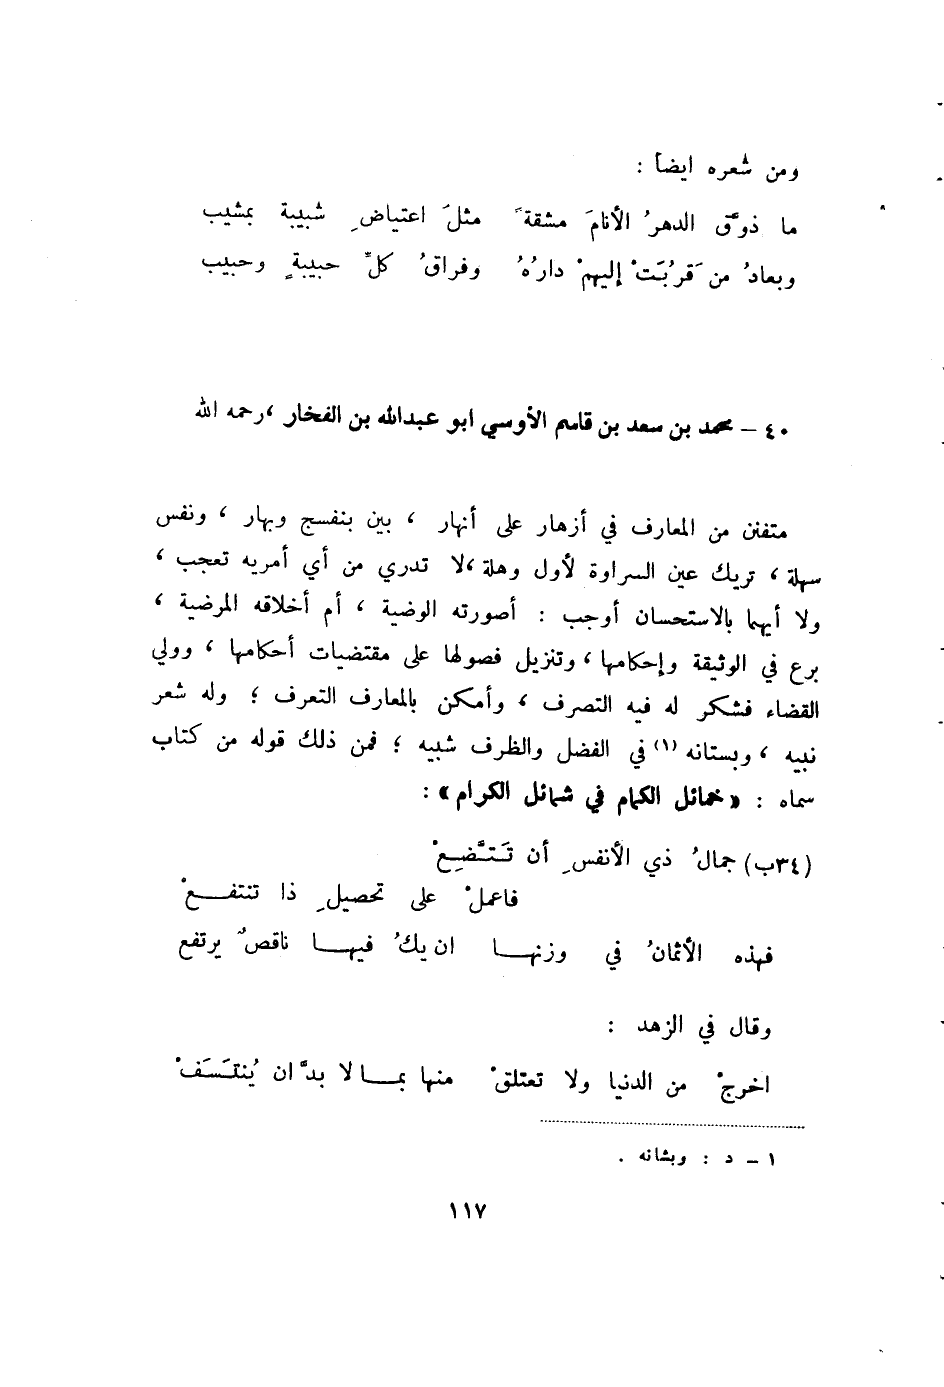 ومن شعره ايضاً :
ما ذوَّق الدهرُ الأنامَ مشقةً مثلَ اعتياضِ شبيبة بمشيب
وبعادُ من قَرُبَتْ إليهمْ دارُهُ وفراقُ كلِّ حبيبةٍ وحبيب
٤٠ – محمد بن سعد بن قاسم الأوسي ابو عبدالله بن الفخار ، رحمه الله
متفنن من المعارف في أزهار على أنهار ، بين بنفسج وبهار ، ونفس
سهلة ، تريك عين السراوة لأول وهلة ، لا تدري من أي أمريه تعجب ،
ولا أيهما بالاستحسان أوجب : أصورته الوضية ، أم أخلاقه المرضية ،
برع في الوثيقة وإحكامها ، وتنزيل فصولها على مقتضيات أحكامها ، وولي
القضاء فشكر له فيه التصرف ، وأمكن بالمعارف التعرف ؛ وله شعر
نبيه ، وبستانه (١) في الفضل والظرف شبيه ؛ فمن ذلك قوله من كتاب
سماه : « خمائل الكمام في شمائل الكرام » :
(٣٤ب) جمالُ ذي الأنفسِ أن تَتَّضِعْ
فاعملْ على تحصيلِ ذا تنتفعْ
فهذه الأثمانُ في وزنها ان يكُ فيها ناقصٌ يرتفع
وقال في الزهد :
اخرجْ من الدنيا ولا تعتلقْ منها بما لا بدَّ ان يُنتَسَفْ
١ – د : وبشانه .
١١٧